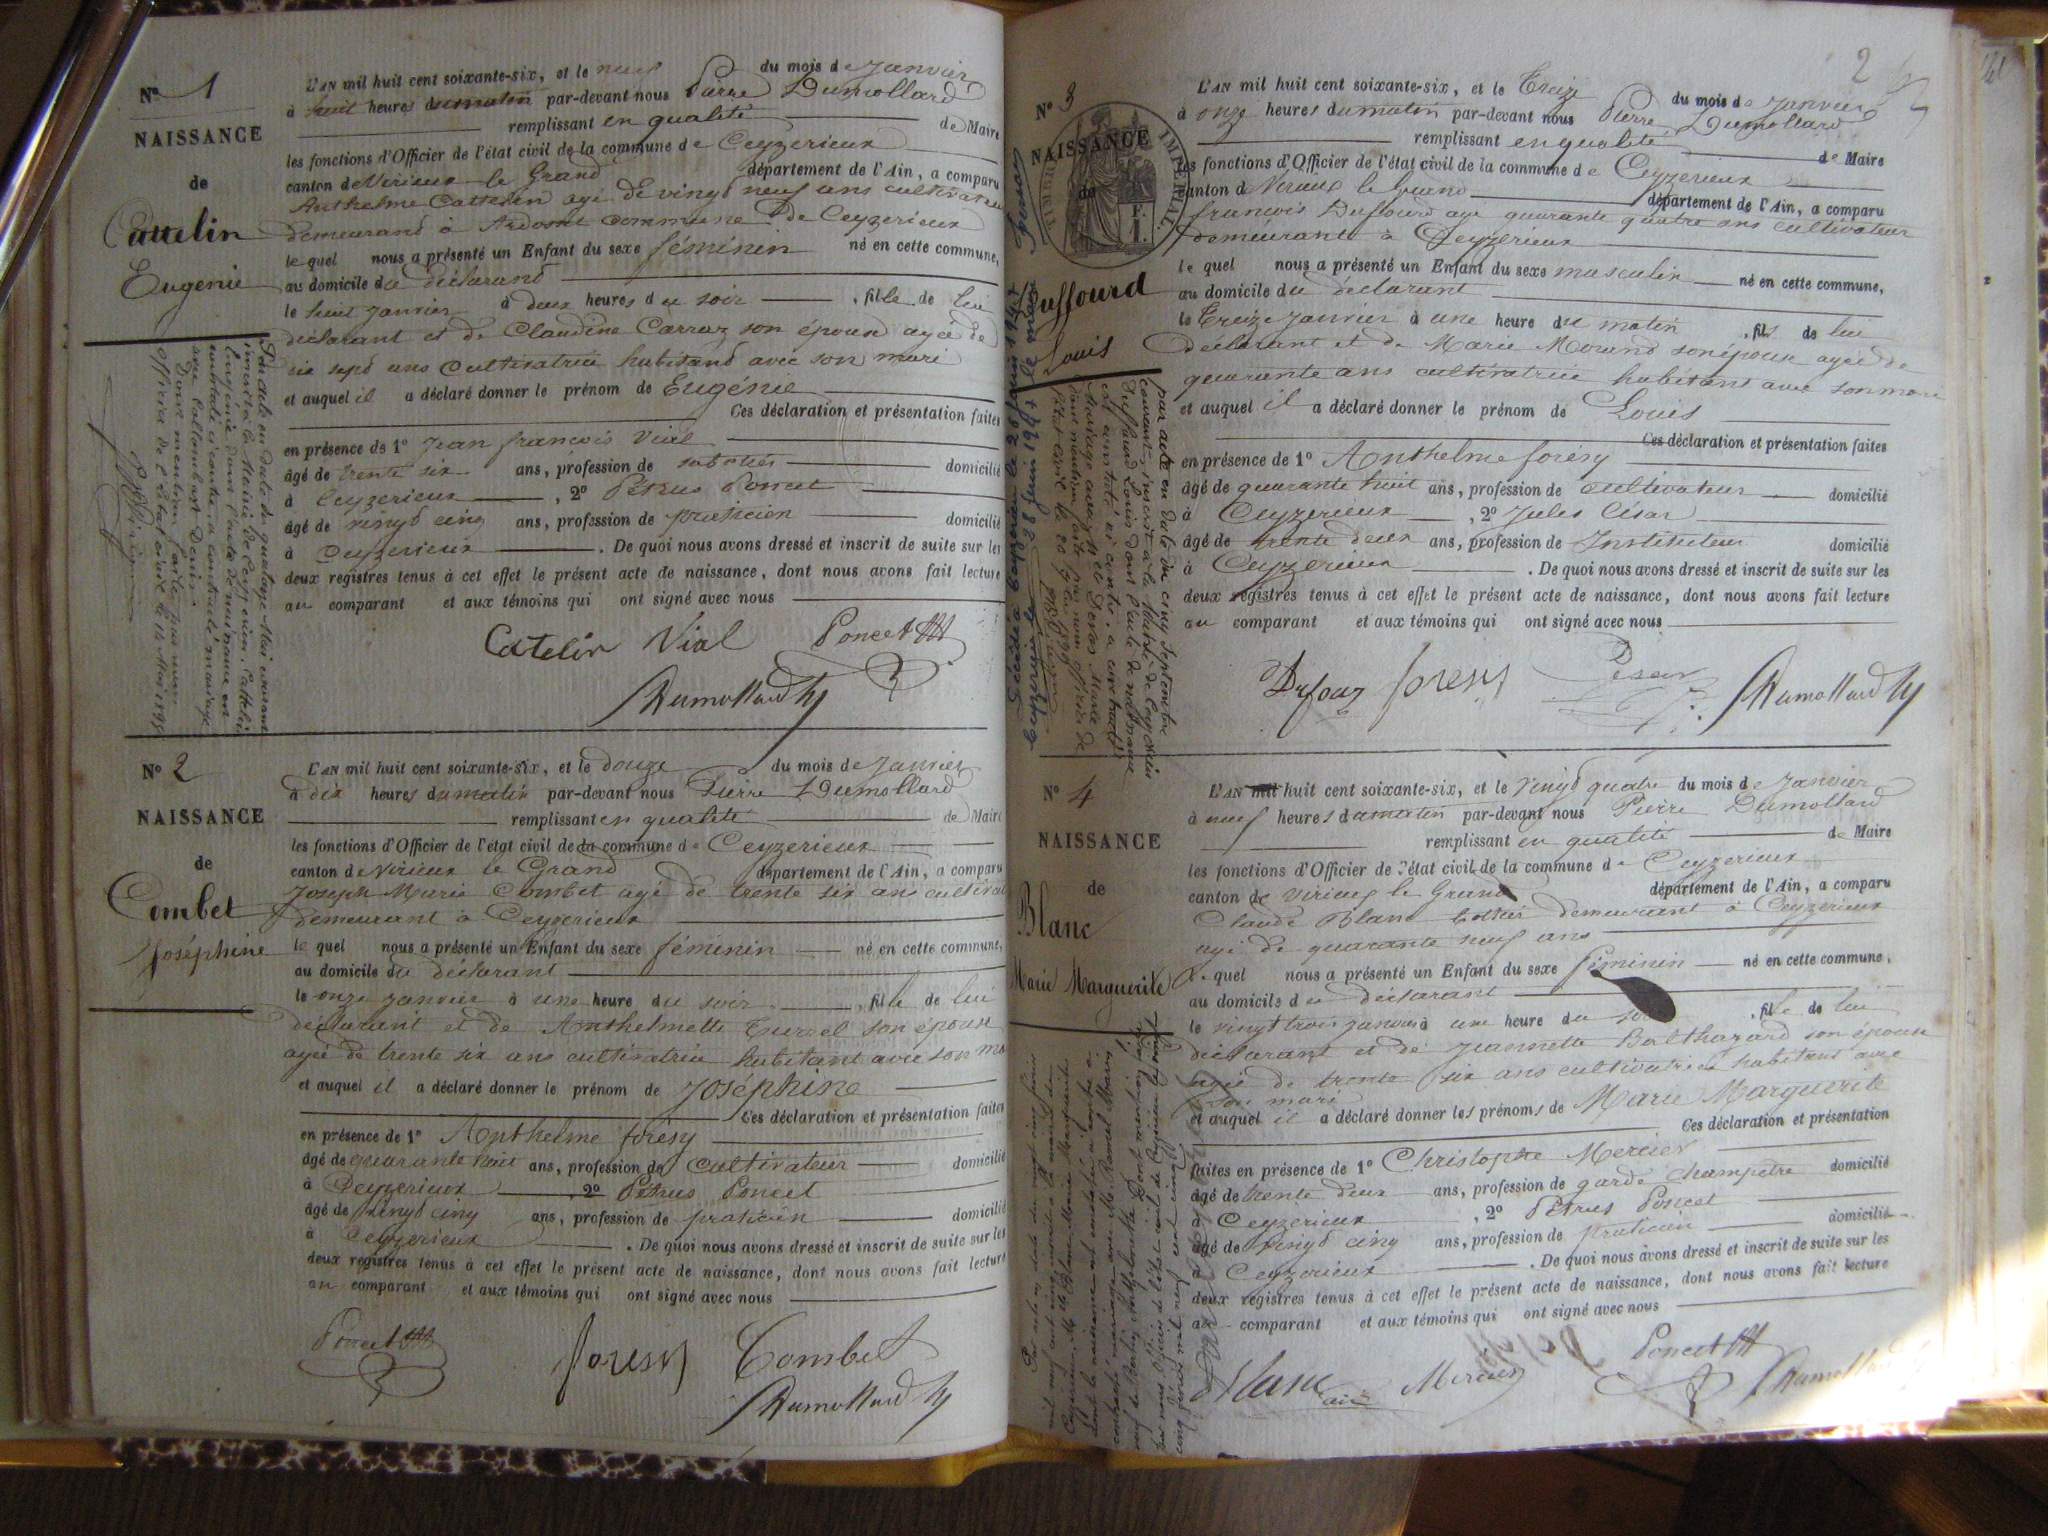 Nº 1
NAISSANCE
de
Cattelin
Eugénie
L'AN mil huit cent soixante-six, et le neuf du mois de Janvier
à huit heures du matin par-devant nous Pierre Dumollard
remplissant en qualité de Maire
les fonctions d'Officier de l'état civil de la commune de Ceyzerieux
canton de Virieux le Grand département de l'Ain, a comparu
Anthelme Cattelin agé de vingt neuf ans cultivateur
demeurand à Ardosset commune de Ceyzerieux
lequel nous a présenté un Enfant du sexe féminin né en cette commune,
au domicile du déclarand
le huit janvier à deux heures du soir, fille de lui
déclarant et de Claudine Carraz son épouse agée de
sept ans cultivatrice habitand avec son mari
et auquel il a déclaré donner le prénom de Eugénie
Ces déclaration et présentation faites
en présence de 1º Jean françois Vial
âgé de trente six ans, profession de sabotier domicilié
à Ceyzerieux, 2º Pétrus Poncet
âgé de vingt cinq ans, profession de praticien domicilié
à Ceyzerieux. De quoi nous avons dressé et inscrit de suite sur les
deux registres tenus à cet effet le présent acte de naissance, dont nous avons fait lecture
au comparant et aux témoins qui ont signé avec nous
Catelin Vial Poncet
Dumollard
Par acte en date du quatorze Mai courant
inscrit à la Mairie de Ceyzerieu, Cattelin
Eugénie dont l'acte de naissance est
contracté mariage
Dont mention faite par nous
officier de l'Etat civil le 14 Mai
Nº 2
NAISSANCE
de
Combet
Joséphine
L'AN mil huit cent soixante-six, et le douze du mois de Janvier
à dix heures du matin par-devant nous Pierre Dumollard
remplissant en qualité de Maire
les fonctions d'Officier de l'état civil de la commune de Ceyzerieux
canton de Virieux le Grand département de l'Ain, a comparu
Joseph Marie Combet agé de trente six ans cultivat
demeurant à Ceyzerieux
lequel nous a présenté un Enfant du sexe féminin né en cette commune,
au domicile du déclarant
le onze janvier à une heure du soir, fille de lui
déclarant et de Anthelmette Turrel son épouse
agée de trente six ans cultivatrice habitant avec son ma
et auquel il a déclaré donner le prénom de Joséphine
Ces déclaration et présentation faites
en présence de 1º Anthelme forésy
âgé de quarante huit ans, profession de cultivateur domicilié
à Ceyzerieux, 2º Pétrus Poncet
âgé de vingt cinq ans, profession de praticien domicilié
à Ceyzerieux. De quoi nous avons dressé et inscrit de suite sur les
deux registres tenus à cet effet le présent acte de naissance, dont nous avons fait lecture
au comparant et aux témoins qui ont signé avec nous
Poncet foresy Combet
Dumollard
2
Nº 3
NAISSANCE
de
TIMBRE IMPÉRIAL
Duffourd
Louis
L'AN mil huit cent soixante-six, et le Treize du mois de Janvier
à onze heures du matin par-devant nous Pierre Dumollard
remplissant en qualité de Maire
les fonctions d'Officier de l'état civil de la commune de Ceyzerieux
canton de Virieux le Grand département de l'Ain, a comparu
françois Duffourd agé quarante quatre ans cultivateur
demeurant à Ceyzerieux
lequel nous a présenté un Enfant du sexe masculin né en cette commune,
au domicile du déclarant
le Treize Janvier à une heure du matin, fils de lui
déclarant et de Marie Morand son épouse agée de
quarante ans cultivatrice habitant avec son mari
et auquel il a déclaré donner le prénom de Louis
Ces déclaration et présentation faites
en présence de 1º Anthelme forésy
âgé de quarante huit ans, profession de cultivateur domicilié
à Ceyzerieux, 2º Jules César
âgé de trente deux ans, profession de Instituteur domicilié
à Ceyzerieux. De quoi nous avons dressé et inscrit de suite sur les
deux registres tenus à cet effet le présent acte de naissance, dont nous avons fait lecture
au comparant et aux témoins qui ont signé avec nous
Dufour foresy César Dumollard
par acte en date du cinq septembre
courant, inscrit à la Mairie de Ceyzerieu
Duffourd Louis dont l'acte de naissance
est constaté ci contre, a contracté
Mariage avec
Décédé à Ceyzerieu le 26 juin 1947
Ceyzerieu le 28 juin 1947 le maire
Nº 4
NAISSANCE
de
Blanc
Marie Marguerite
L'AN mil huit cent soixante-six, et le vingt quatre du mois de Janvier
à neuf heures du matin par-devant nous Pierre Dumollard
remplissant en qualité de Maire
les fonctions d'Officier de l'état civil de la commune de Ceyzerieux
canton de Virieux le Grand département de l'Ain, a comparu
Claude Blanc demeurant à Ceyzerieux
agé de quarante neuf ans
lequel nous a présenté un Enfant du sexe féminin né en cette commune,
au domicile du déclarant
le vingt trois janvier à une heure du soir, fille de lui
déclarant et de Jeannette Balthazard son épouse
agée de trente six ans cultivatrice habitant avec
son mari
et auquel il a déclaré donner les prénoms de Marie Marguerite
Ces déclaration et présentation
faites en présence de 1º Christophe Mercier
âgé de trente deux ans, profession de garde champêtre domicilié
à Ceyzerieux, 2º Pétrus Poncet
âgé de vingt cinq ans, profession de praticien domicilié
à Ceyzerieux. De quoi nous avons dressé et inscrit de suite sur les
deux registres tenus à cet effet le présent acte de naissance, dont nous avons fait lecture
au comparant et aux témoins qui ont signé avec nous
Blanc Mercier Poncet Dumollard